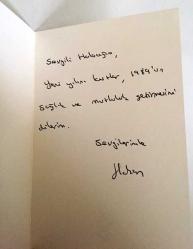 Sevgili
Yeni yılını kutlar, 1989'un
sağlık ve mutluluk getirmesini
dilerim.
Sevgilerimle